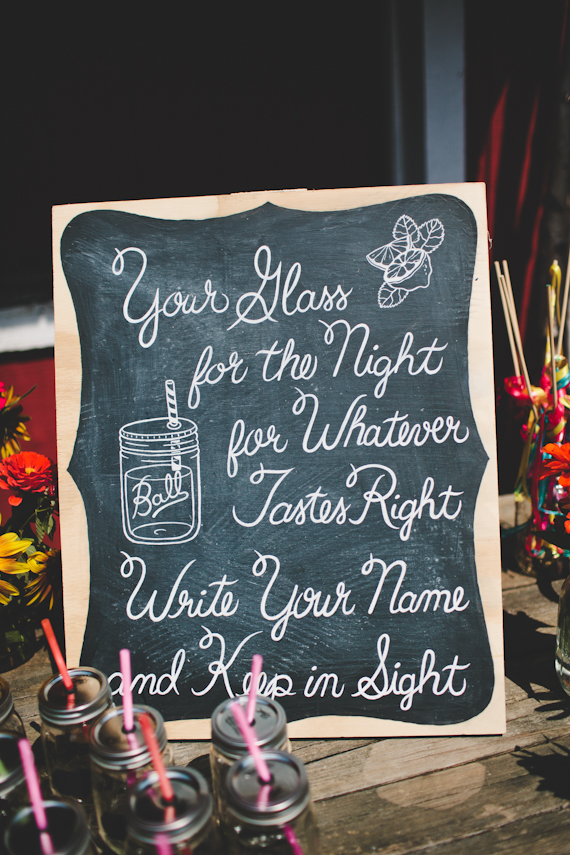 Your Glass
for the Night
for Whatever
Ball
Tastes Right
Write Your Name
and Keep in Sight